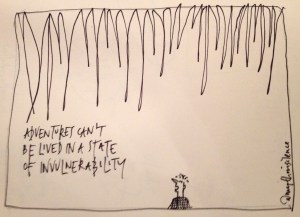 ADVENTURES CAN'T
BE LIVED IN A STATE
OF INVULNERABILITY